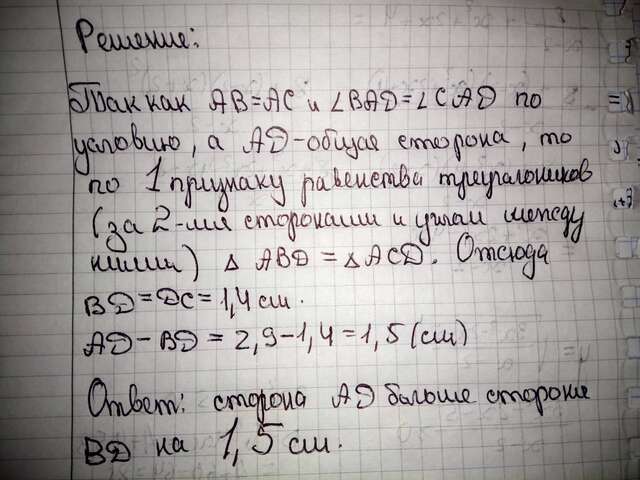 Решение:
Так как AB=AC и ∠BAD=∠CAD по
условию, а AD-общая сторона, то
по 1 признаку равенства треугольников
(за 2-мя сторонами и углом между
ними) Δ ABD = Δ ACD. Отсюда
BD=DC=1,4 см.
AD-BD=2,9-1,4=1,5(см)
Ответ: сторона AD больше стороны
BD на 1,5 см.